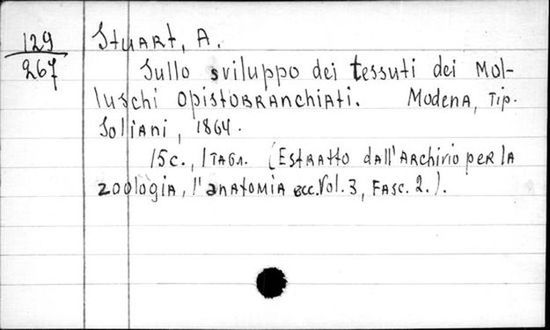 129 Stuart, A.
267 Sullo sviluppo dei tessuti dei Mol-
luschi Opistobranchiati. Modena, Tip.
Soliani, 1864.
15c., 1 табл. (Estratto dall'Archivio per la
zoologia, l'anatomia ecc. Vol. 3, Fasc. 2.).